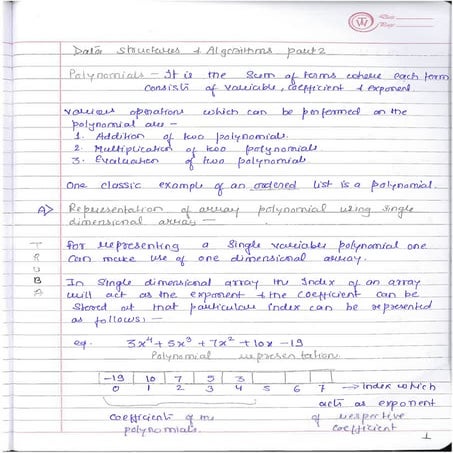 Data Structures & Algorithms part 2
Polynomials - It is the Sum of terms where each term
consists of variable, coefficient & exponent
Various operations which can be performed on the
polynomial are -
1. Addition of two polynomials.
2. Multiplication of two polynomials
3. Evaluation of two polynomials
One classic example of an ordered list is a polynomial.
A> Representation of array polynomial using single
dimensional array -
For representing a Single variable polynomial one
can make use of one dimensional array.
In Single dimensional array the Index of an array
will act as the exponent & the coefficient can be
Stored at that particular index can be represented
as follows:-
eg. 3x⁴ + 5x³ + 7x² + 10x - 19
Polynomial representation
-19 10 7 5 3
0 1 2 3 4 5 6 7 → Index which
acts as exponent
of respective
coefficient
coefficients of the
polynomials.
1